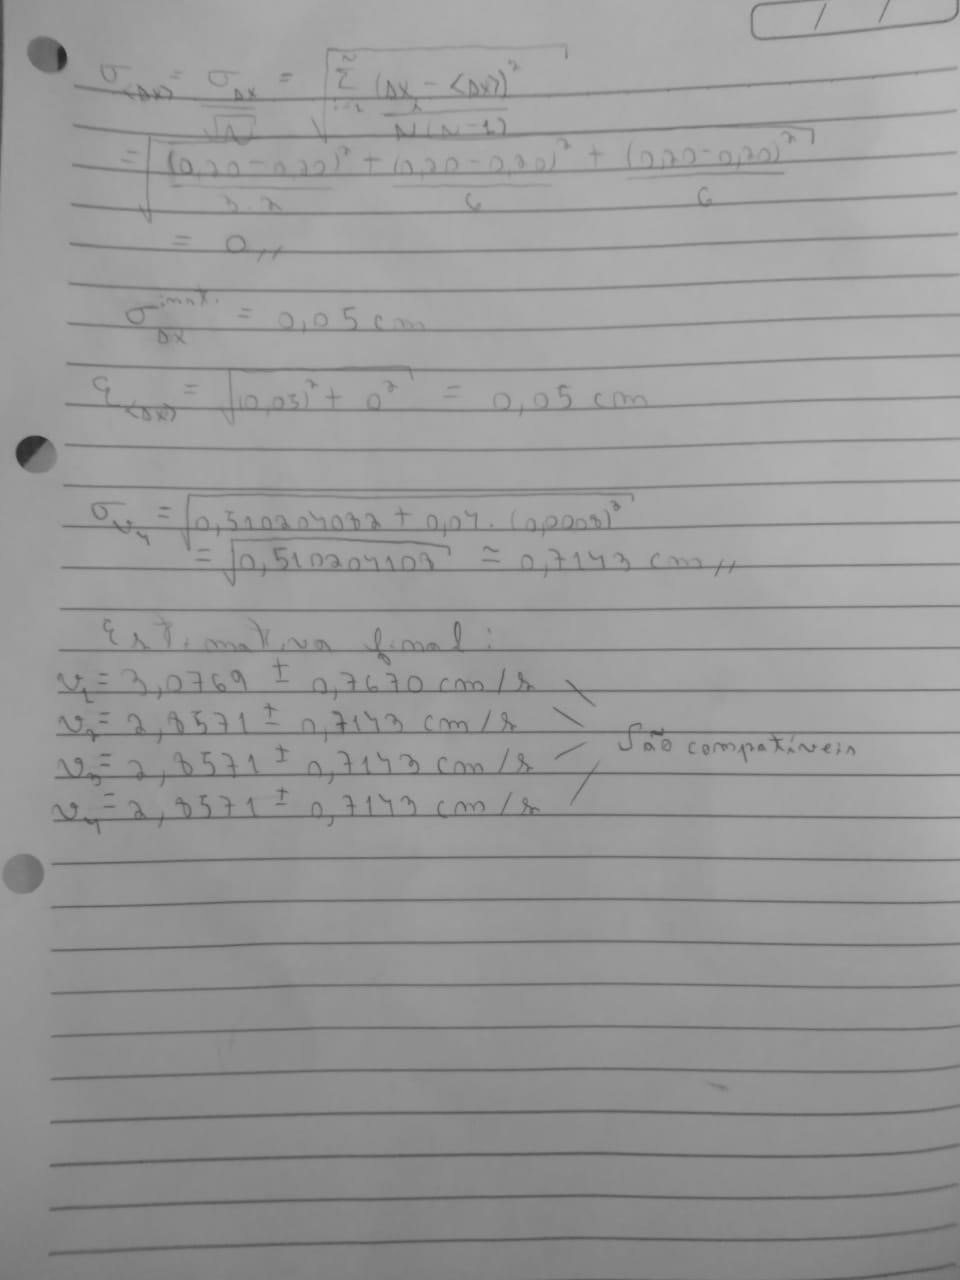 / /
σ<Δx> = σΔx/√N = √(Σ(Δxi - <Δx>)²/N(N-1))
= √((0,20-0,20)²/3.2 + (0,20-0,20)²/6 + (0,20-0,20)²/6)
= 0,,
σΔx^inst. = 0,05 cm
ε<Δx> = √((0,05)² + 0²) = 0,05 cm
σv4 = √(0,510204082 + 0,04 . (0,0008)²)
= √0,510204103 ≅ 0,7143 cm,,
Estimativa final:
v1 = 3,0769 ± 0,7670 cm/s
v2 = 2,8571 ± 0,7143 cm/s
São compatíveis
v3 = 2,8571 ± 0,7143 cm/s
v4 = 2,8571 ± 0,7143 cm/s